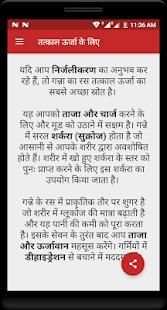 11:36 AM
तत्काल ऊर्जा के लिए
यदि आप निर्जलीकरण का अनुभव कर
रहे हैं, तो गन्ना का रस तत्काल ऊर्जा का
सबसे अच्छा स्रोत है।
यह आपको ताजा और चार्ज करने के
लिए और मूड को उठाने में सक्षम है। गन्ने
में सरल शर्करा (सुक्रोज) होता है जो
आसानी से आपके शरीर द्वारा अवशोषित
होते हैं। शरीर में खो हुए शर्करा के स्तर को
पुनः प्राप्त करने के लिए इस शर्करा का
उपयोग किया जाता है।
गन्ने के रस में प्राकृतिक तौर पर शुगर है
जो शरीर में ग्लूकोज की मात्रा बढ़ाती है
और यह पानी की कमी को पूरा करता
है। इसके सेवन के तुरंत बाद आप ताजा
और ऊर्जावान महसूस करेंगे। गर्मियों में
डीहाइड्रेशन से बचाने में मदद